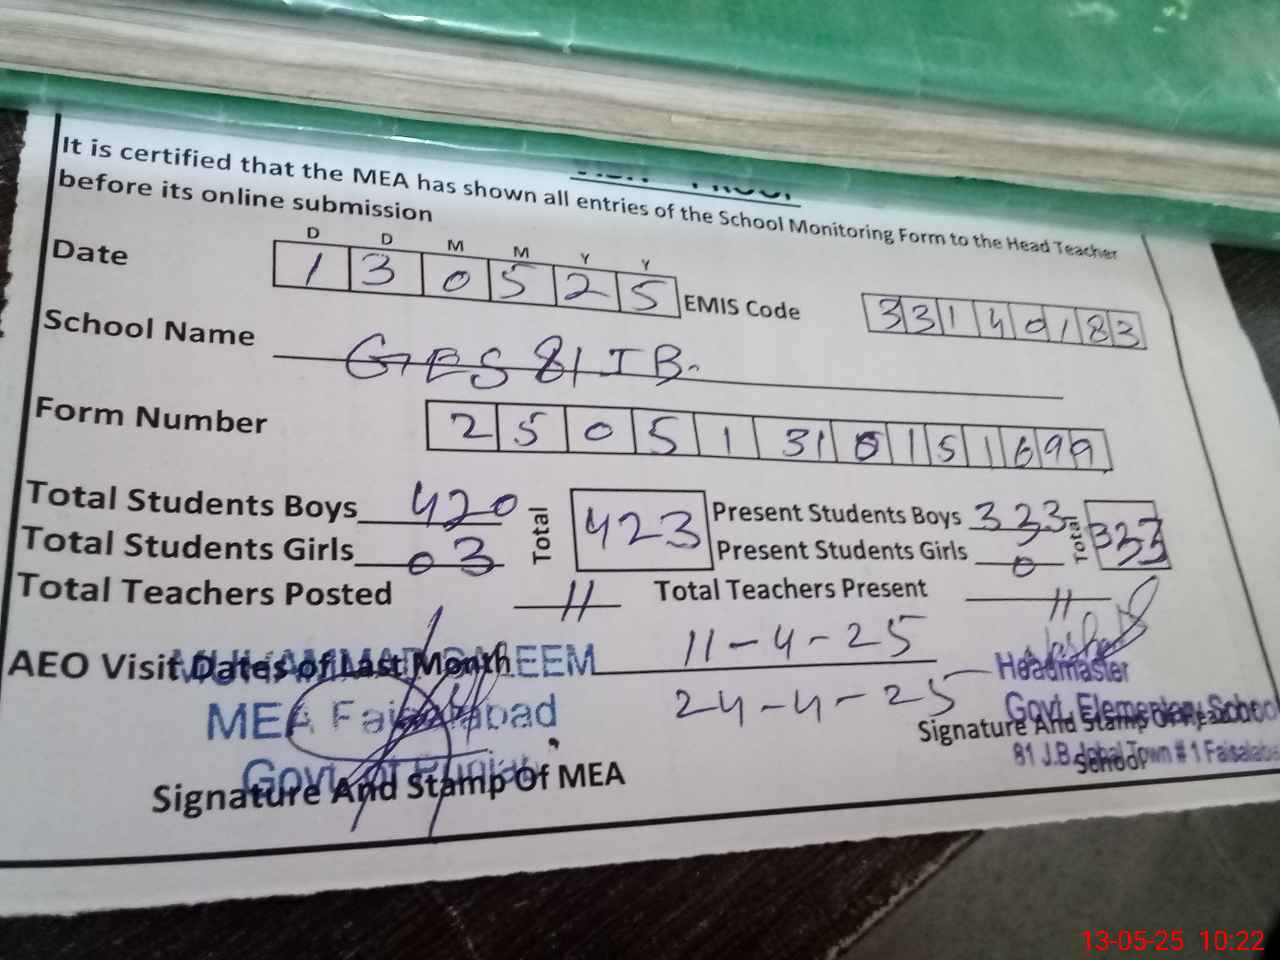 It is certified that the MEA has shown all entries of the School Monitoring Form to the Head Teacher
before its online submission
Date
D D M M Y Y
1 3 0 5 2 5
EMIS Code
3 3 1 4 0 1 8 3
School Name
GES 81 JB.
Form Number
2 5 0 5 1 31 0 1 5 1 6 9 9
Total Students Boys 420
Total Students Girls 03
Total 423
Present Students Boys 333
Present Students Girls 0
Total 333
Total Teachers Posted 11
Total Teachers Present 11
AEO Visit Dates of Last Month 11-4-25
24-4-25
MEA Faisalabad
Govt of Punjab
Signature And Stamp Of MEA
Headmaster
Govt. Elementary School
81 J.B. Iqbal Town # 1 Faisalaba
Signature And Stamp Of Head
School
13-05-25 10:22